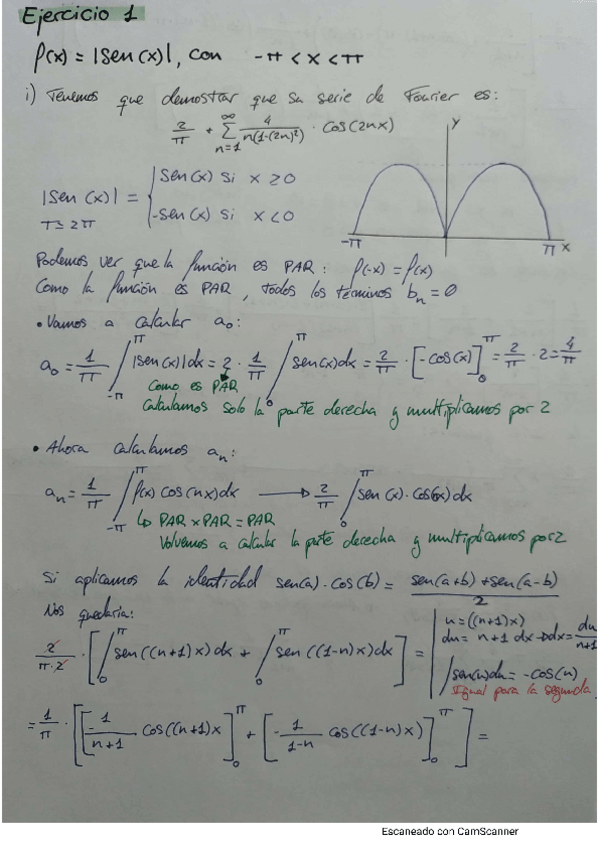 Ejercicio 1
f(x) = |sen(x)|, con -π < x < π
i) Tenemos que demostrar que su serie de Fourier es:
2/π + ∑_{n=1}^{∞} 4/(π(1-(2n)²)) · cos(2nx)
y
|sen(x)| = { sen(x) si x ≥ 0
-sen(x) si x < 0
T = 2π
-π π x
Podemos ver que la función es PAR: f(-x) = f(x)
Como la función es PAR, todos los términos bₙ = 0
• Vamos a calcular a₀:
a₀ = 1/π ∫_{-π}^{π} |sen(x)|dx = 2 · 1/π ∫_0^π sen(x)dx = 2/π · [-cos(x)]_0^π = 2/π · 2 = 4/π
Como es PAR
Calculamos solo la parte derecha y multiplicamos por 2
• Ahora calculamos aₙ:
aₙ = 1/π ∫_{-π}^{π} f(x) cos(nx)dx → 2/π ∫_0^π sen(x) · cos(nx)dx
↳ PAR x PAR = PAR
Volvemos a calcular la parte derecha y multiplicamos por 2
Si aplicamos la identidad sen(a) · cos(b) = (sen(a+b) + sen(a-b))/2
Nos quedaria:
2/(π·2) · [∫_0^π sen((n+1)x)dx + ∫_0^π sen((1-n)x)dx] =
u = ((n+1)x)
du = n+1 dx → dx = du/(n+1)
∫sen(u)du = -cos(u)
Igual para la segunda
= 1/π · [[-1/(n+1) cos((n+1)x]_0^π + [-1/(1-n) cos((1-n)x)]_0^π] =
Escaneado con CamScanner